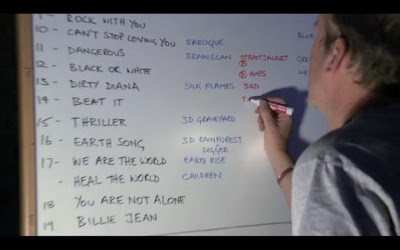 9 - ROCK WITH YOU
10 - CAN'T STOP LOVING YOU BAROQUE BLUE
11 - DANGEROUS BRAINSCAN STRAITJACKET
12 - BLACK OR WHITE AMPS
13 - DIRTY DIANA SILK FLAMES BED
14 - BEAT IT
15 - THRILLER 3D GRAVEYARD
16 - EARTH SONG 3D RAINFOREST
DIGGER
17 - WE ARE THE WORLD EARTH RISE
- HEAL THE WORLD CHILDREN
18 YOU ARE NOT ALONE
19 BILLIE JEAN